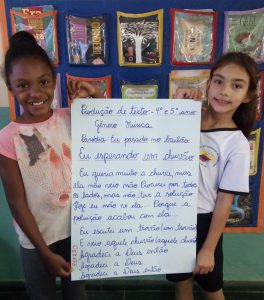 Produção de texto - 4º e 5º ano
Gênero - Música
Paródia: Eu parado no bailão
Eu esperando um chuvão
Eu queria muito a chuva, mas
ela não veio não Procurei por todos
os lados, mas não tive a solução
Hoje eu não vi ela. Porque a
poluição acabou com ela.
Eu escutei um trovão (um trovão)
E veio aquele chuvão (aquele chuvão)
Agradeci a Deus então
Agradeci a Deus
Agradeci a Deus então